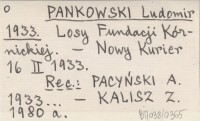 o PANKOWSKI Ludomir
1933. Losy Fundacji Kór-
nickiej. – Nowy Kurier
16 II 1933.
Rec.: PACYŃSKI A.
1933... – KALISZ Z.
1980 a.